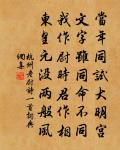 當年同試大明宮
文字雖同命不同
我作尉時君作相
東皇元沒兩般風
杭州老尉詩一首詞典
網集